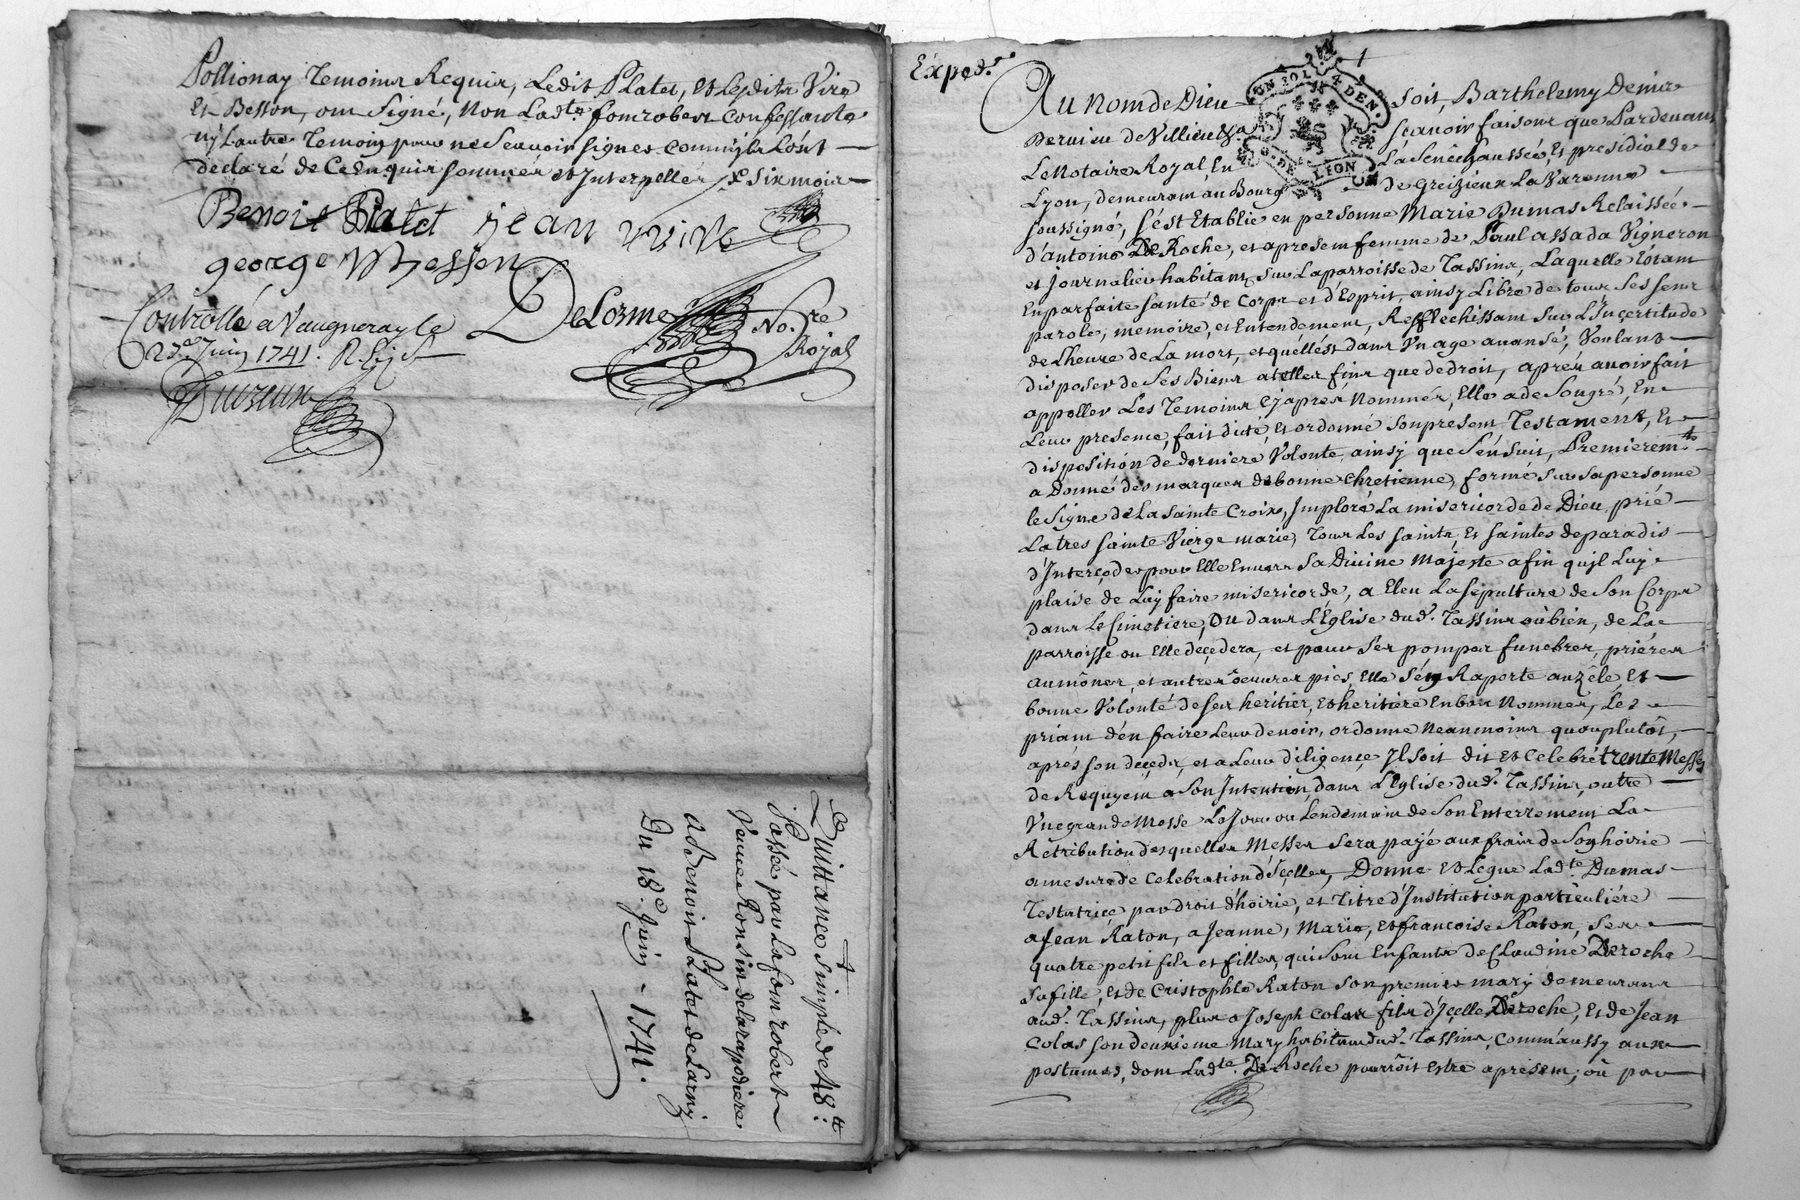 Pollionay Temoins Requis, Ledit Platet, et Lesdits Vive
Et Besson, ont Signé, Non Lad.te fontrobert Confessante
ny Lautre Temoin pour ne Scavoir signer Comm'ils Lont
declaré de Ce Enquis sommés et Interpellés
Benoit Platet jean vive
george Besson
DeLorme No.re Royal
Controllé a Vaugneray le
23e Juin 1741. R
Quittance Simple de 48.tt
Passée par La fontrobert
Veuve Ronsin de la rapodiere
a Benoit Platet de Larny
Du 18.e Juin 1741.
Exped.
Au Nom de Dieu soit, Barthelemy Denis
ON JOL 4 DEN.
G. DE LION
Dervieu de Villieu scavoir faisons que Pardevant
Le Notaire Royal En La Sénéchaussée, et presidial de
Lyon, demeurant au Bourg de Greizieux La Varenne
soussigné, s'est Etablie en personne Marie Dumas Relaissée
d'antoine DeRoche, et apresent femme de Paul assada Vigneron
et journalier habitant Sur La parroisse de Tassins, Laquelle Estant
En parfaite santé de Corps et d'Esprit, ainsy Libre de tous Ses sens
parole, memoire, et Entendement, Reffléchissant Sur L'Incertitude
de Lheure de La mort, et quélle est dans Vn age avansé, Voulant
disposer de Ses Biens a telles fins que de droit, aprés avoir fait
appeller Les Temoins Cy aprés Nommés, Elle a de Son gré, En
Leur presence, fait dicté, et ordonné Son present Testament, Et
disposition de derniere Volonté, ainsy que S'én Suit, Premierem.t
a Donné des marques de bonne Chretienne, formé Sur Sa personne
le Signe de La Sainte Croix, Imploré La misericorde de Dieu, prié
La tres Sainte Vierge marie, Tous Les Saints, Et Saintes de paradis
d'Interceder pour Elle Envers Sa Divine Majeste afin qu'il Luy
plaise de Luy faire misericorde, a Eleu La Sepulture de Son Corps
dans Le Cimetiere, ou dans L'Eglise dud.t Tassins où bien, de La
parroisse ou Elle decedera, et pour Ses pompes funebres, priéres
aumônes, et autres oeuvres pies, Elle S'én Raporte au zéle, Et
bonne Volonté de Ses heritier, et heritiere En bas Nommés, Les
priant d'én faire Leur devoir, ordonne Neanmoins qu'ou plutôt,
aprés Son decéds, et a Leur diligence Jl Soit dit et Celebré trente Messes
de Requyem a Son Intention, dans L'Eglise dud.t Tassins, outre
Vne grande Messe Le Jour ou Lendemain de Son Enterrement La
Retribution désquelles Messes Sera payé aux frais de Son hoirie
a mesure de Celebration d'icelles, Donne et Legue Lad.te Dumas
Testatrice par droit d'hoirie, et Titre d'Institution particuliére
a Jean Raton, a Jeanne, Marie, et francoise Raton, Ses
quatre petit fils et filles, qui Sont Enfants de Claudine Deroche
Sa fille, et de Cristophle Raton Son premier mary demeurant
aud.t Tassins, plus a Joseph Colas fils d'Icelle Deroche, Et de Jean
Colas Son deuxieme Mary habitant dud.t Tassins, Comm'aussy aux
postumes, dont Lad.te DeRoche pourroit Estre apresent, où par